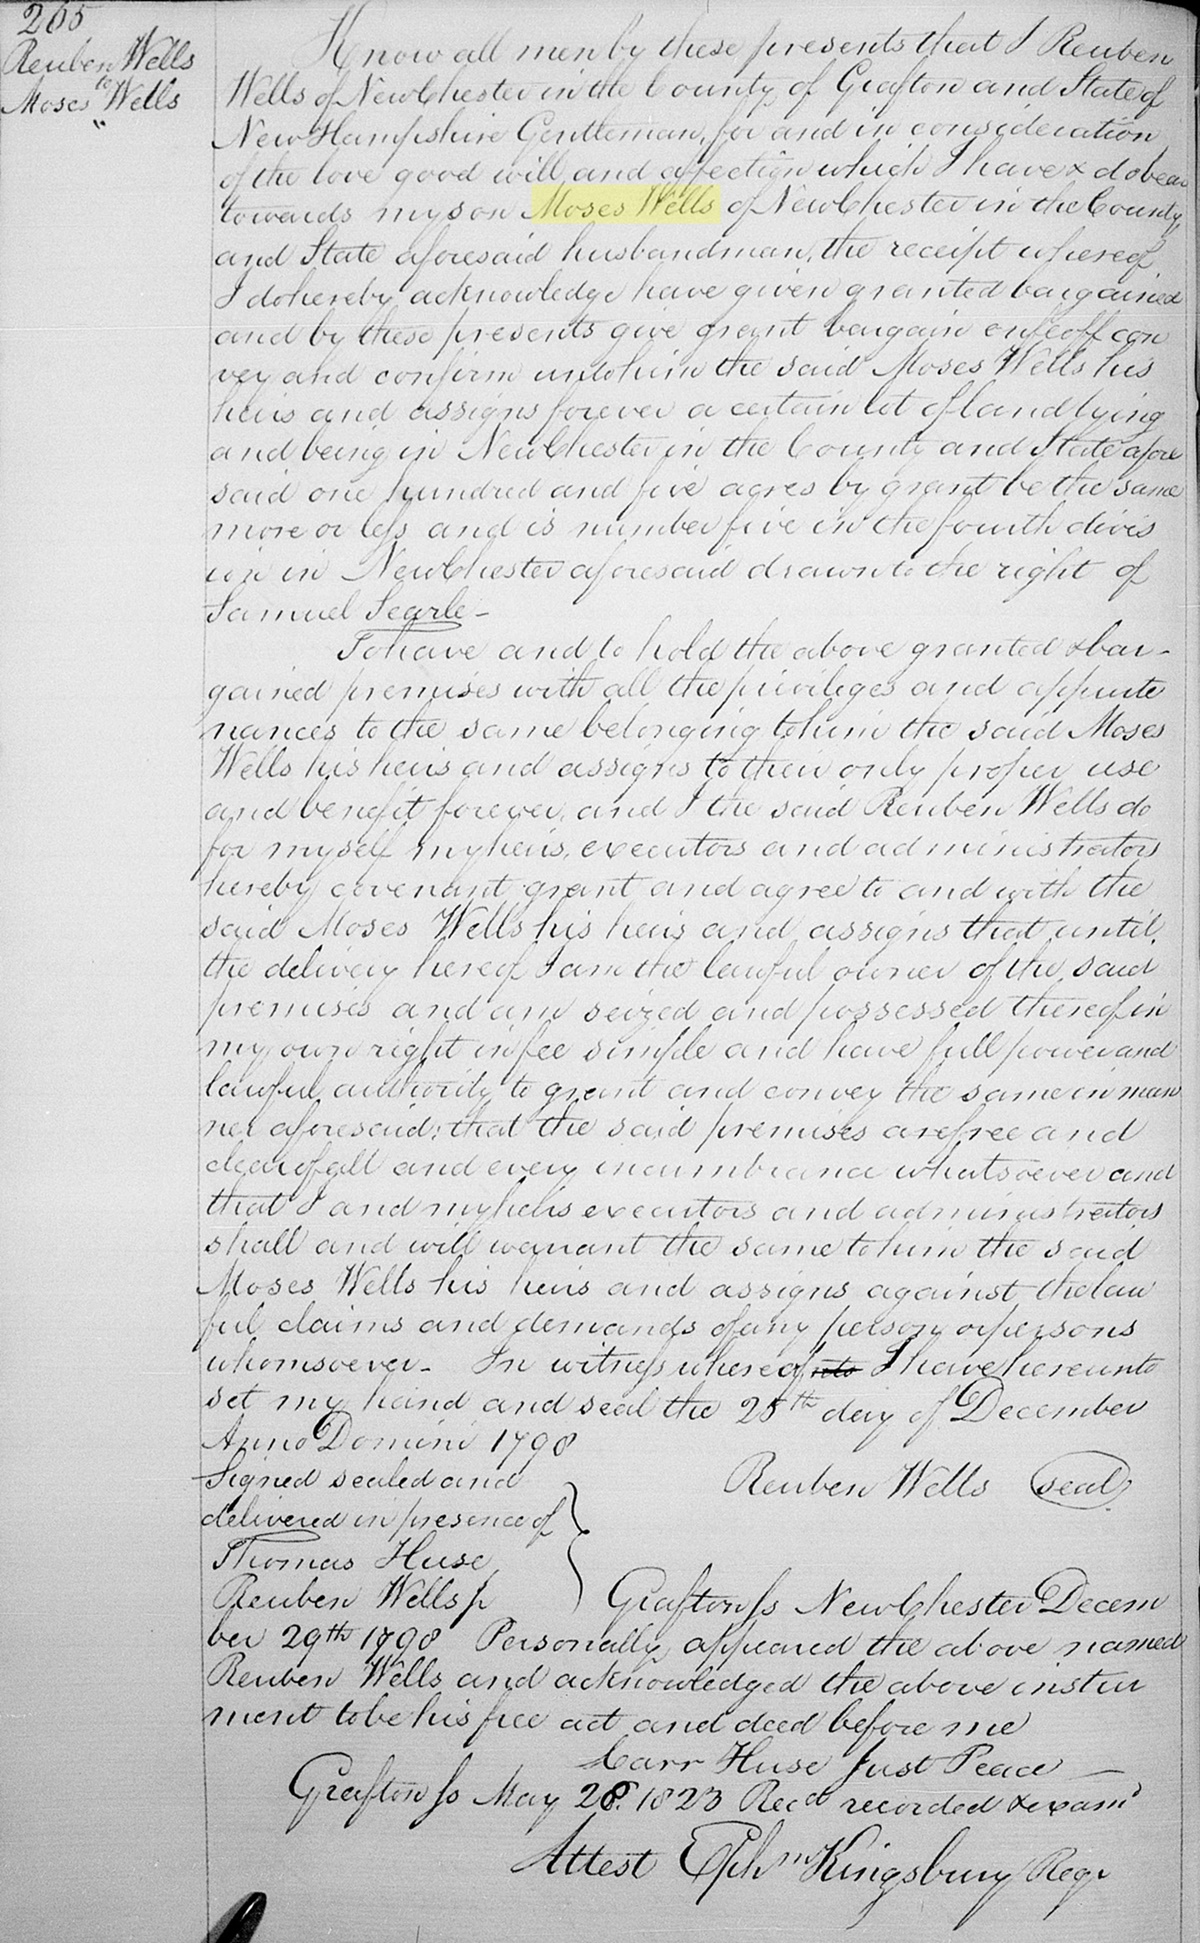 265
Reuben Wells
to
Moses Wells
"
Know all men by these presents that I Reuben
Wells of NewChester in the County of Grafton and State of
New Hampshire Gentleman, for and in consideration
of the love good will and affection which I have & do bear
towards my son Moses Wells of NewChester in the County
and State aforesaid husbandman, the receipt whereof
I do hereby acknowledge have given granted bargained
and by these presents give grant bargain enfeoff con
vey and confirm unto him the said Moses Wells his
heirs and assigns forever a certain lot of land lying
and being in NewChester in the County and State afore
said one hundred and five acres by grant be the same
more or less and is number five in the fourth divis
ion in NewChester aforesaid drawn to the right of
Samuel Searle -
To have and to hold the above granted & bar-
gained premises with all the privileges and appurte
nances to the same belonging to him the said Moses
Wells his heirs and assigns to their only proper use
and benefit forever, and I the said Reuben Wells do
for myself my heirs, executors and administrators
hereby covenant grant and agree to and with the
said Moses Wells his heirs and assigns that until
the delivery hereof I am the lawful owner of the said
premises and am seized and possessed thereof in
my own right in fee simple and have full power and
lawful authority to grant and convey the same in man
ner aforesaid; that the said premises are free and
clear of all and every incumbrance whatsoever and
that I and my heirs executors and administrators
shall and will warrant the same to him the said
Moses Wells his heirs and assigns against the law
ful claims and demands of any person or persons
whomsoever - In witness whereof I have hereunto
set my hand and seal the 25th day of December
Anno Domini 1798
Signed sealed and
delivered in presence of
Reuben Wells seal
Thomas Huse
Reuben Wells jr
Grafton ss NewChester Decem
ber 29th 1798 Personally appeared the above named
Reuben Wells and acknowledged the above instru
ment to be his free act and deed before me
Carr Huse Just Peace
Grafton ss May 28. 1823 Recd recorded & examd
Attest Ephm Kingsbury Regr